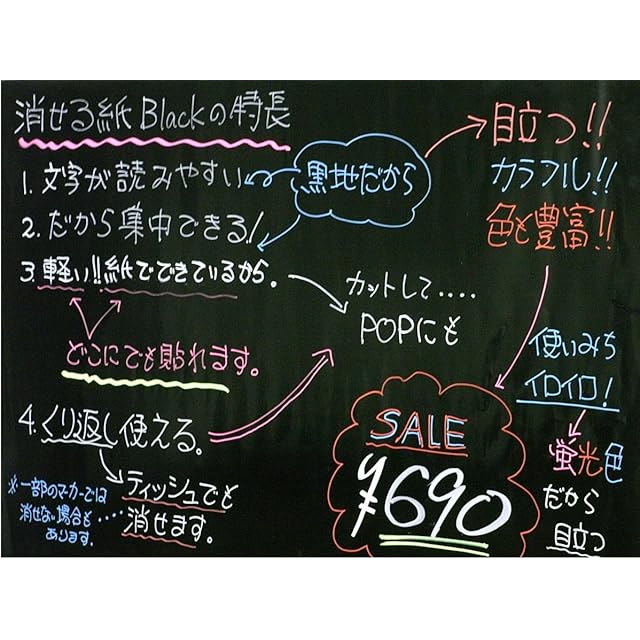 消せる紙Blackの特長
1. 文字が読みやすい
2. だから集中できる!
3. 軽い!!紙でできているから。
どこにでも貼れます。
4. くり返し使える。
ティッシュでも
消せます。
※一部のマーカーでは
消せない場合も・・・・
あります。
黒地だから
目立つ!!
カラフル!!
色も豊富!!
カットして.....
POPにも
SALE
¥690
使いみち
イロイロ!
蛍光色
だから
目立つ